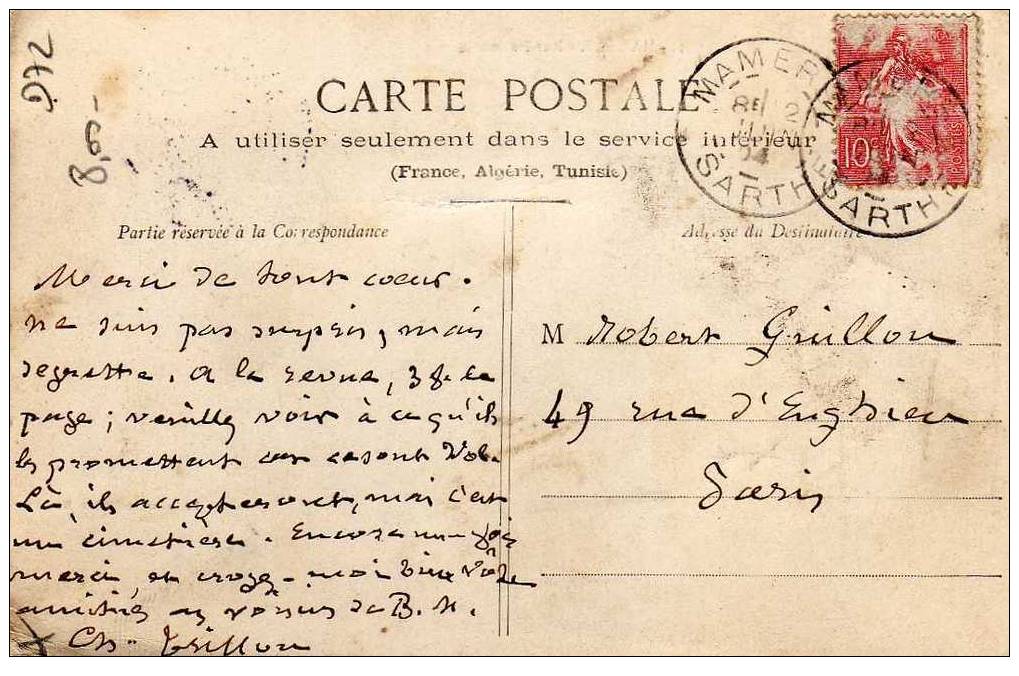 972
8,6-
CARTE POSTALE
A utiliser seulement dans le service intérieur
(France, Algérie, Tunisie)
MAMERS
SARTHE
MAMERS
SARTHE
10c
POSTES
Partie réservée à la Correspondance
Adresse du Destinataire
Merci de tout coeur.
ne suis pas surpris, mais
regrette. A la revue, 3f. la
page; veuillez voir à ce qu'ils
les promettent
Là, ils accepteront, mais c'est
un cimetière. Encore une fois
merci, et croyez-moi bien Vôtre
amitiés au voisin de B. N.
Ch. Trillon
M Robert Guillou
49 rue d'Enghien
Paris